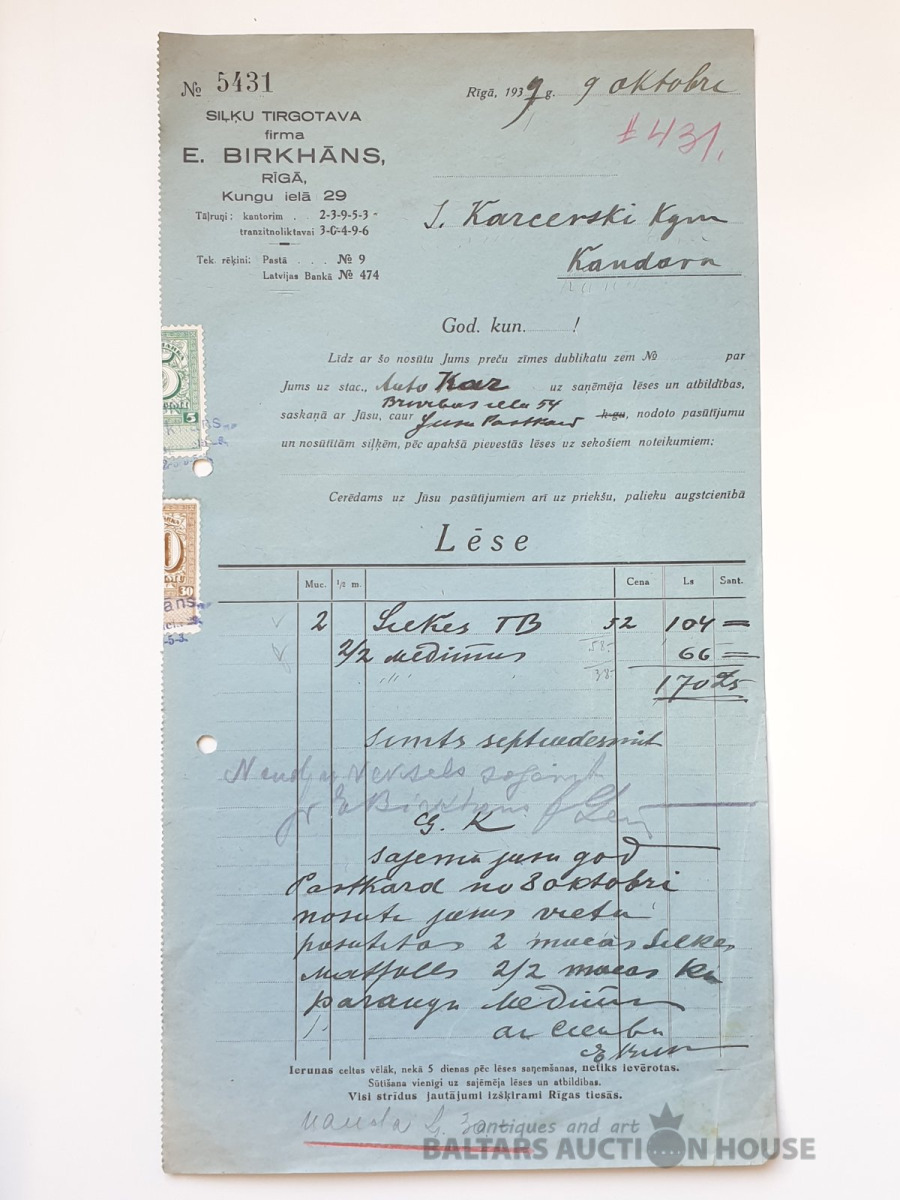 № 5431
Rīgā, 1939 g. 9 oktobri
SIĻĶU TIRGOTAVA
firma
E. BIRKHĀNS,
RĪGĀ,
Kungu ielā 29
Tāļruņi: kantorim . . 2-3-9-5-3
tranzitnoliktavai 3-0-4-9-6
Tek. rēķini: Pastā . . . № 9
Latvijas Bankā № 474
431.
Karcevski Kgm
Kandavā
God. kun. !
Līdz ar šo nosūtu Jums preču zīmes dublikatu zem № par
Jums uz stac., Auto Kar uz saņēmēja lēses un atbildības,
Brivibas iela 54
saskaņā ar Jūsu, caur Jusu Postkard k-gu, nodoto pasūtījumu
un nosūtītām siļķēm, pēc apakšā pievestās lēses uz sekošiem noteikumiem:
Cerēdams uz Jūsu pasūtījumiem arī uz priekšu, palieku augstcienībā
5
30
Lēse
Muc. ½ m. Cena Ls Sant.
2 Silkes TB 52 104 =
2/2 Medimus 58.- 66 =
38 170
simts septindesmit
G. K
sajemu jusu god
Postkard no 8 oktobri
nosutu jusus vietu
pasutitas 2 mucas Silkes
Matfulls 2/2 mucas ka
paraugu Medium
ar cienibu
Ierunas celtas vēlāk, nekā 5 dienas pēc lēses saņemšanas, netiks ievērotas.
Sūtīšana vienīgi uz sajēmēja lēses un atbildības.
Visi strīdus jautājumi izšķirami Rīgas tiesās.
antiques and art
BALTARS AUCTION HOUSE